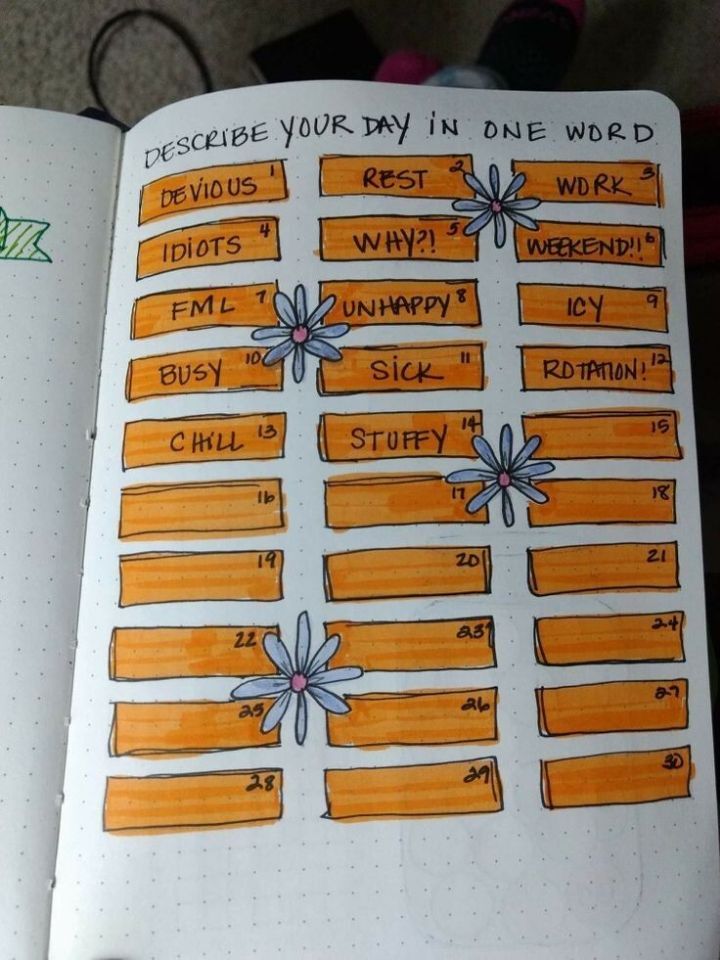 DESCRIBE YOUR DAY IN ONE WORD
DEVIOUS 1 REST 2 WORK 3
IDIOTS 4 WHY?! 5 WEEKEND!! 6
FML 7 UNHAPPY 8 ICY 9
BUSY 10 SICK 11 ROTATION! 12
CHILL 13 STUFFY 14 15
16 17 18
19 20 21
22 23 24
25 26 27
28 29 30